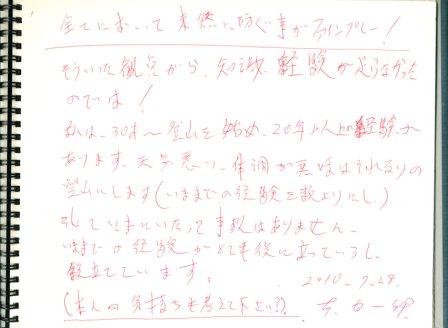 全てにおいて未然に防ぐ事がファインプレー!
そういった観点から、知識、経験が足らなかった
のでは!
私は、30才〜登山を始め、20年以上の経験が
あります。天気悪い、体調が悪い時はそれなりの
登山にします(いままでの経験を教よりにし、)
そしていまにいたって事故はありません。
いままでの経験がとても役に立っているし、
役立てています。
2010.9.28.
(本人の気持ちも考えて下さい??)